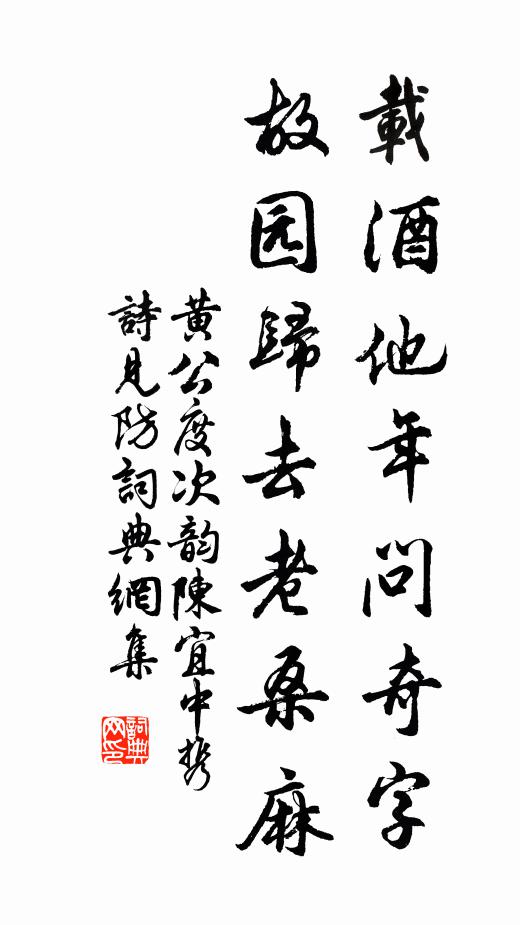 載酒他年問奇字
故园歸去老桑麻
黄公度次韵陳宜中携
詩見防詞典網集
詞典网印